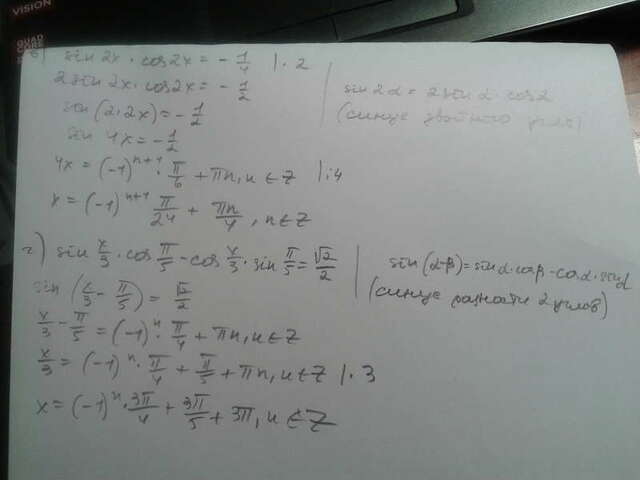 VISION
QUAD
CORE
в) sin 2x · cos 2x = - 1/4 | · 2
2 sin 2x · cos 2x = - 1/2
sin (2 · 2x) = - 1/2
sin 4x = - 1/2
4x = (-1)^{n+1} · π/6 + πn, n ∈ Z |:4
x = (-1)^{n+1} π/24 + πn/4, n ∈ Z
sin 2α = 2 sin α · cos α
(синус двойного угла)
г) sin x/3 · cos π/5 - cos x/3 · sin π/5 = √2/2
sin (x/3 - π/5) = √2/2
x/3 - π/5 = (-1)^n · π/4 + πn, n ∈ Z
x/3 = (-1)^n · π/4 + π/5 + πn, n ∈ Z | · 3
x = (-1)^n · 3π/4 + 3π/5 + 3π, n ∈ Z
sin (α-β) = sin α · cos β - cos α · sin
(синус разности 2 углов)